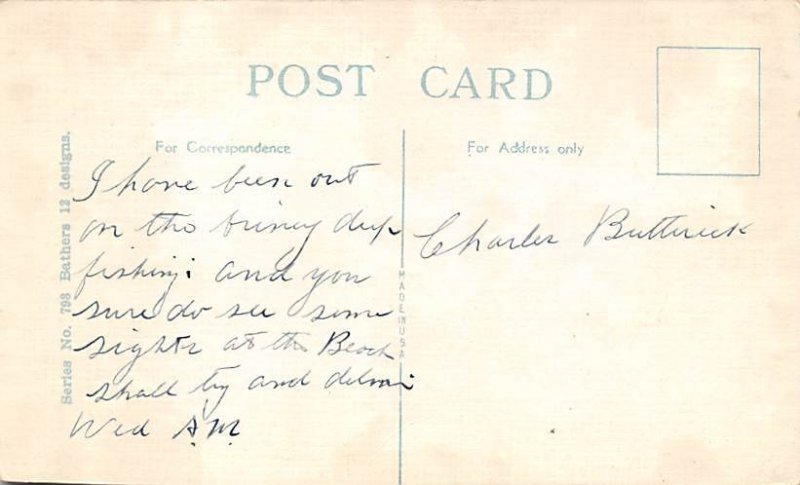 POST CARD
For Correspondence
For Address only
Series No. 793 Bathers 12 designs.
MADE IN USA
I have been out
on the briney deep
fishing: and you
sure do see some
sights at the Beach
shall try and
Wed A.M.
Charles Butterick